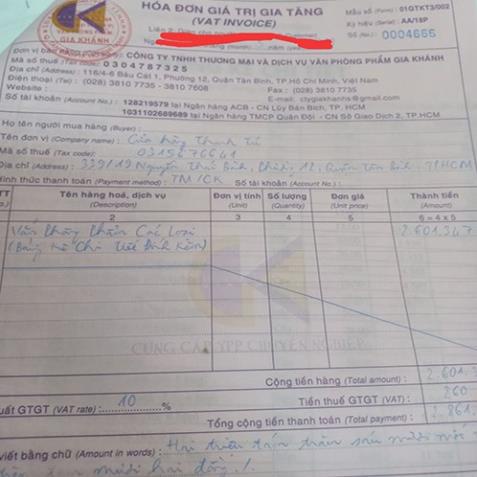 HÓA ĐƠN GIÁ TRỊ GIA TĂNG
(VAT INVOICE)
Mẫu số (Form): 01GTKT3/002
Ký hiệu (Serial): AA/18P
Số (No.): 0004666
GIA KHÁNH
Đơn vị bán CÔNG TY TNHH THƯƠNG MẠI VÀ DỊCH VỤ VĂN PHÒNG PHẨM GIA KHÁNH
Mã số thuế 0304787325
Địa chỉ (Address): 116/4-6 Bàu Cát 1, Phường 12, Quận Tân Bình, TP.Hồ Chí Minh, Việt Nam
Điện thoại (Tel): (028) 3810 7735 - 3810 7608 Fax: (028) 3810 7735
Website: E-mail: ctygiakhanhs@gmail.com
Số tài khoản (Account No.): 128219579 tại Ngân hàng ACB - CN Lũy Bán Bích, TP. HCM
1031102689689 tại Ngân hàng TMCP Quân Đội - CN Sở Giao Dịch 2, TP. HCM
Họ tên người mua hàng (Buyer):
Tên đơn vị (Company name): Cửa hàng Thanh Tú
Mã số thuế (Tax code): 0315676641
Địa chỉ (Address): 339/19 Nguyễn Thái Bình, 12, Quận Tân Bình, TPHCM
Hình thức thanh toán (Payment method): TM/CK Số tài khoản (Account No.):
TT Tên hàng hoá, dịch vụ Đơn vị tính Số lượng Đơn giá Thành tiền
(Description) (Unit) (Quantity) (Unit price) (Amount)
2 3 4 5 6 = 4 x 5
Văn Phòng Phẩm Các Loại 2.601.347
(Bảng Kê Chi Tiết Đính Kèm)
CUNG CẤP VPP CHUYÊN NGHIỆP
Cộng tiền hàng (Total amount): 2.601.3
suất GTGT (VAT rate): 10 % Tiền thuế GTGT (VAT): 260
Tổng cộng tiền thanh toán (Total payment): 2.861.
viết bằng chữ (Amount in words): Hai triệu tám trăm sáu mươi mốt
mươi hai đồng./.